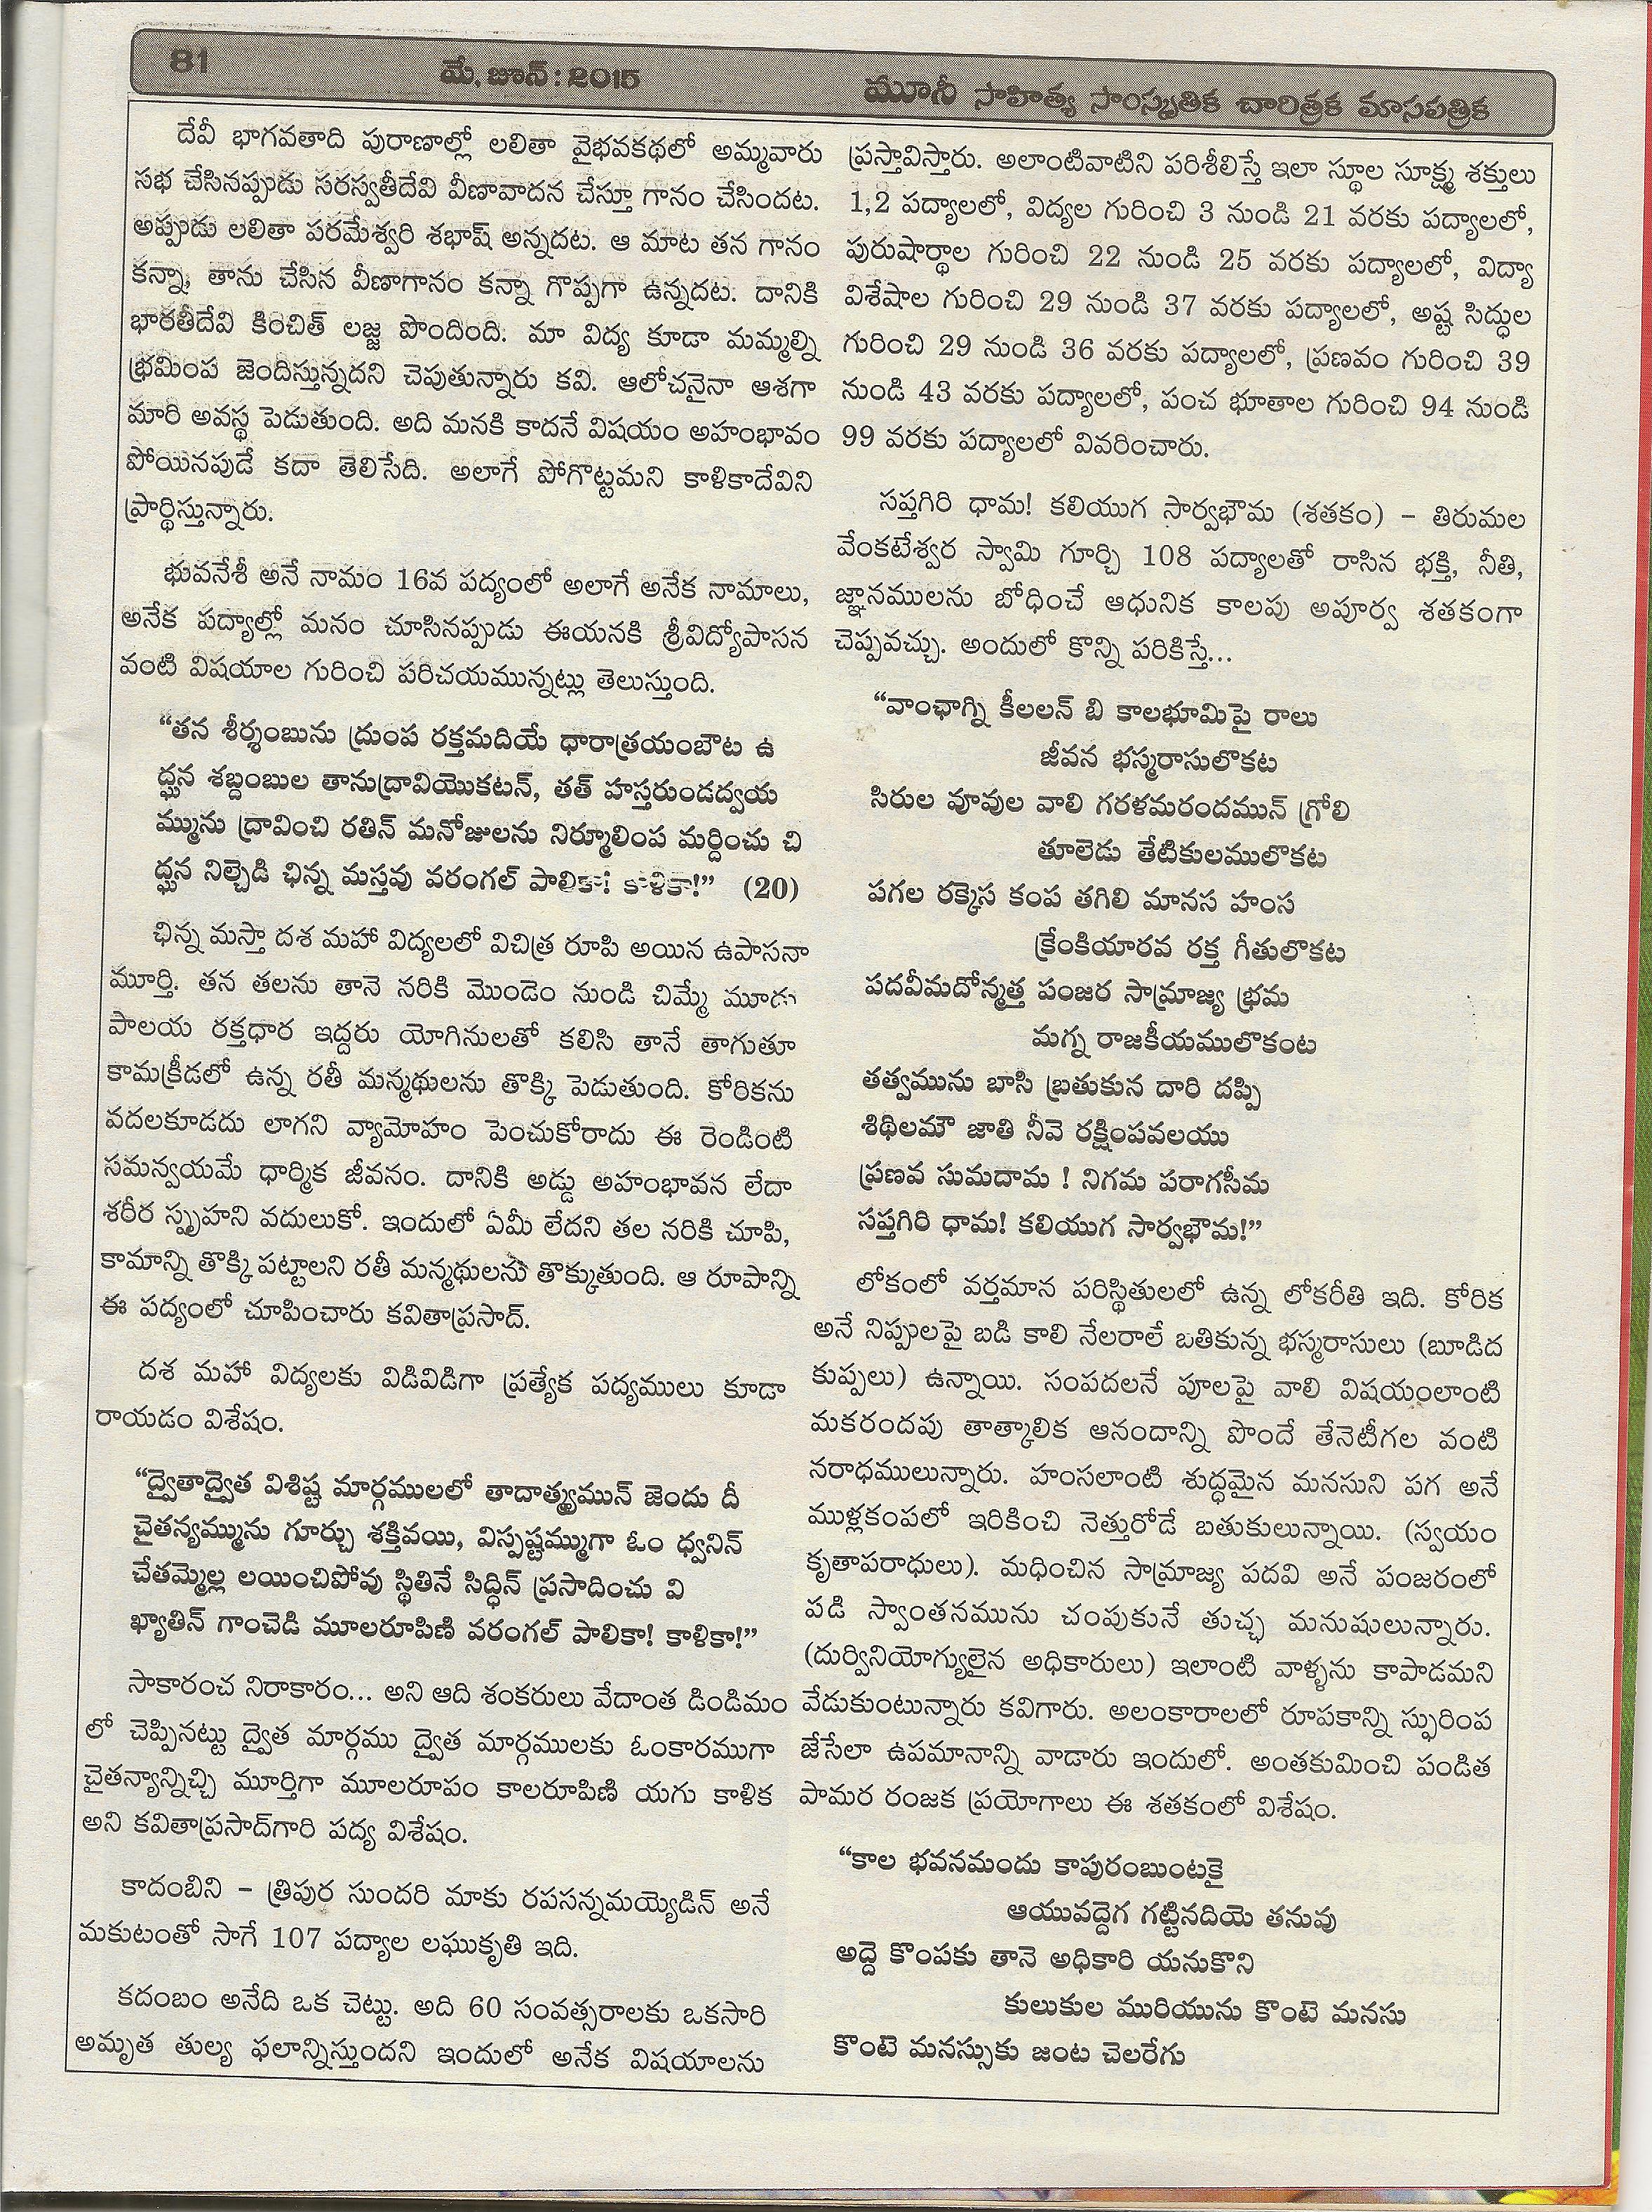 81
మే, జూన్ : 2015
మూసీ సాహిత్య సాంస్కృతిక చారిత్రక మాసపత్రిక
దేవీ భాగవతాది పురాణాల్లో లలితా వైభవకథలో అమ్మవారు
సభ చేసినప్పుడు సరస్వతీదేవి వీణావాదన చేస్తూ గానం చేసిందట.
అప్పుడు లలితా పరమేశ్వరి శభాష్ అన్నదట. ఆ మాట తన గానం
కన్నా, తాను చేసిన వీణాగానం కన్నా గొప్పగా ఉన్నదట. దానికి
భారతీదేవి కించిత్ లజ్జ పొందింది. మా విద్య కూడా మమ్మల్ని
భ్రమింప జెందిస్తున్నదని చెపుతున్నారు కవి. ఆలోచనైనా ఆశగా
మారి అవస్థ పెడుతుంది. అది మనకి కాదనే విషయం అహంభావం
పోయినపుడే కదా తెలిసేది. అలాగే పోగొట్టమని కాళికాదేవిని
ప్రార్థిస్తున్నారు.
భువనేశీ అనే నామం 16వ పద్యంలో అలాగే అనేక నామాలు,
అనేక పద్యాల్లో మనం చూసినప్పుడు ఈయనకి శ్రీవిద్యోపాసన
వంటి విషయాల గురించి పరిచయమున్నట్లు తెలుస్తుంది.
“తన శీర్శంబును ద్రుంప రక్తమదియే ధారాత్రయంబౌట ఉ
ద్ఘన శబ్దంబుల తానుద్రావియొకటన్, తత్ హస్తరుండద్వయ
మ్మును ద్రావించి రతిన్ మనోజులను నిర్మూలింప మర్దించు చి
ద్ఘన నిల్చెడి ఛిన్న మస్తవు వరంగల్ పాలికా! కాళికా!” (20)
ఛిన్న మస్తా దశ మహా విద్యలలో విచిత్ర రూపి అయిన ఉపాసనా
మూర్తి. తన తలను తానె నరికి మొండెం నుండి చిమ్మే మూడు
పాలయ రక్తధార ఇద్దరు యోగినులతో కలిసి తానే తాగుతూ
కామక్రీడలో ఉన్న రతీ మన్మథులను తొక్కి పెడుతుంది. కోరికను
వదలకూడదు లాగని వ్యామోహం పెంచుకోరాదు ఈ రెండింటి
సమన్వయమే ధార్మిక జీవనం. దానికి అడ్డు అహంభావన లేదా
శరీర స్పృహని వదులుకో. ఇందులో ఏమీ లేదని తల నరికి చూపి,
కామాన్ని తొక్కి పట్టాలని రతీ మన్మథులను తొక్కుతుంది. ఆ రూపాన్ని
ఈ పద్యంలో చూపించారు కవితాప్రసాద్.
దశ మహా విద్యలకు విడివిడిగా ప్రత్యేక పద్యములు కూడా
రాయడం విశేషం.
“ద్వైతాద్వైత విశిష్ట మార్గములలో తాదాత్మ్యమున్ జెందు దీ
చైతన్యమ్మును గూర్చు శక్తివయి, విస్పష్టమ్ముగా ఓం ధ్వనిన్
చేతమ్మెల్ల లయించిపోవు స్థితినే సిద్ధిన్ ప్రసాదించు వి
ఖ్యాతిన్ గాంచెడి మూలరూపిణి వరంగల్ పాలికా! కాళికా!”
సాకారంచ నిరాకారం... అని ఆది శంకరులు వేదాంత డిండిమం
లో చెప్పినట్టు ద్వైత మార్గము ద్వైత మార్గములకు ఓంకారముగా
చైతన్యాన్నిచ్చి మూర్తిగా మూలరూపం కాలరూపిణి యగు కాళిక
అని కవితాప్రసాద్‌గారి పద్య విశేషం.
కాదంబిని – త్రిపుర సుందరి మాకు రపసన్నమయ్యెడిన్ అనే
మకుటంతో సాగే 107 పద్యాల లఘుకృతి ఇది.
కదంబం అనేది ఒక చెట్టు. అది 60 సంవత్సరాలకు ఒకసారి
అమృత తుల్య ఫలాన్నిస్తుందని ఇందులో అనేక విషయాలను
ప్రస్తావిస్తారు. అలాంటివాటిని పరిశీలిస్తే ఇలా స్థూల సూక్ష్మ శక్తులు
1,2 పద్యాలలో, విద్యల గురించి 3 నుండి 21 వరకు పద్యాలలో,
పురుషార్థాల గురించి 22 నుండి 25 వరకు పద్యాలలో, విద్యా
విశేషాల గురించి 29 నుండి 37 వరకు పద్యాలలో, అష్ట సిద్ధుల
గురించి 29 నుండి 36 వరకు పద్యాలలో, ప్రణవం గురించి 39
నుండి 43 వరకు పద్యాలలో, పంచ భూతాల గురించి 94 నుండి
99 వరకు పద్యాలలో వివరించారు.
సప్తగిరి ధామ! కలియుగ సార్వభౌమ (శతకం) – తిరుమల
వేంకటేశ్వర స్వామి గూర్చి 108 పద్యాలతో రాసిన భక్తి, నీతి,
జ్ఞానములను బోధించే ఆధునిక కాలపు అపూర్వ శతకంగా
చెప్పవచ్చు. అందులో కొన్ని పరికిస్తే...
“వాంఛాగ్ని కీలలన్ బి కాలభూమిపై రాలు
జీవన భస్మరాసులొకట
సిరుల వూవుల వాలి గరళమరందమున్ గ్రోలి
తూలెడు తేటికులములొకట
పగల రక్కెస కంప తగిలి మానస హంస
క్రేంకియారవ రక్త గీతులొకట
పదవీమదోన్మత్త పంజర సామ్రాజ్య భ్రమ
మగ్న రాజకీయములొకంట
తత్వమును బాసి బ్రతుకున దారి దప్పి
శిథిలమౌ జాతి నీవె రక్షింపవలయు
ప్రణవ సుమదామ ! నిగమ పరాగసీమ
సప్తగిరి ధామ! కలియుగ సార్వభౌమ!”
లోకంలో వర్తమాన పరిస్థితులలో ఉన్న లోకరీతి ఇది. కోరిక
అనే నిప్పులపై బడి కాలి నేలరాలే బతికున్న భస్మరాసులు (బూడిద
కుప్పలు) ఉన్నాయి. సంపదలనే పూలపై వాలి విషయంలాంటి
మకరందపు తాత్కాలిక ఆనందాన్ని పొందే తేనెటీగల వంటి
నరాధములున్నారు. హంసలాంటి శుద్ధమైన మనసుని పగ అనే
ముళ్లకంపలో ఇరికించి నెత్తురోడే బతుకులున్నాయి. (స్వయం
కృతాపరాధులు). మధించిన సామ్రాజ్య పదవి అనే పంజరంలో
పడి స్వాంతనమును చంపుకునే తుచ్ఛ మనుషులున్నారు.
(దుర్వినియోగ్యులైన అధికారులు) ఇలాంటి వాళ్ళను కాపాడమని
వేడుకుంటున్నారు కవిగారు. అలంకారాలలో రూపకాన్ని స్ఫురింప
జేసేలా ఉపమానాన్ని వాడారు ఇందులో. అంతకుమించి పండిత
పామర రంజక ప్రయోగాలు ఈ శతకంలో విశేషం.
“కాల భవనమందు కాపురంబుంటకై
ఆయువద్దెగ గట్టినదియె తనువు
అద్దె కొంపకు తానె అధికారి యనుకొని
కులుకుల మురియును కొంటె మనసు
కొంటె మనస్సుకు జంట చెలరేగు